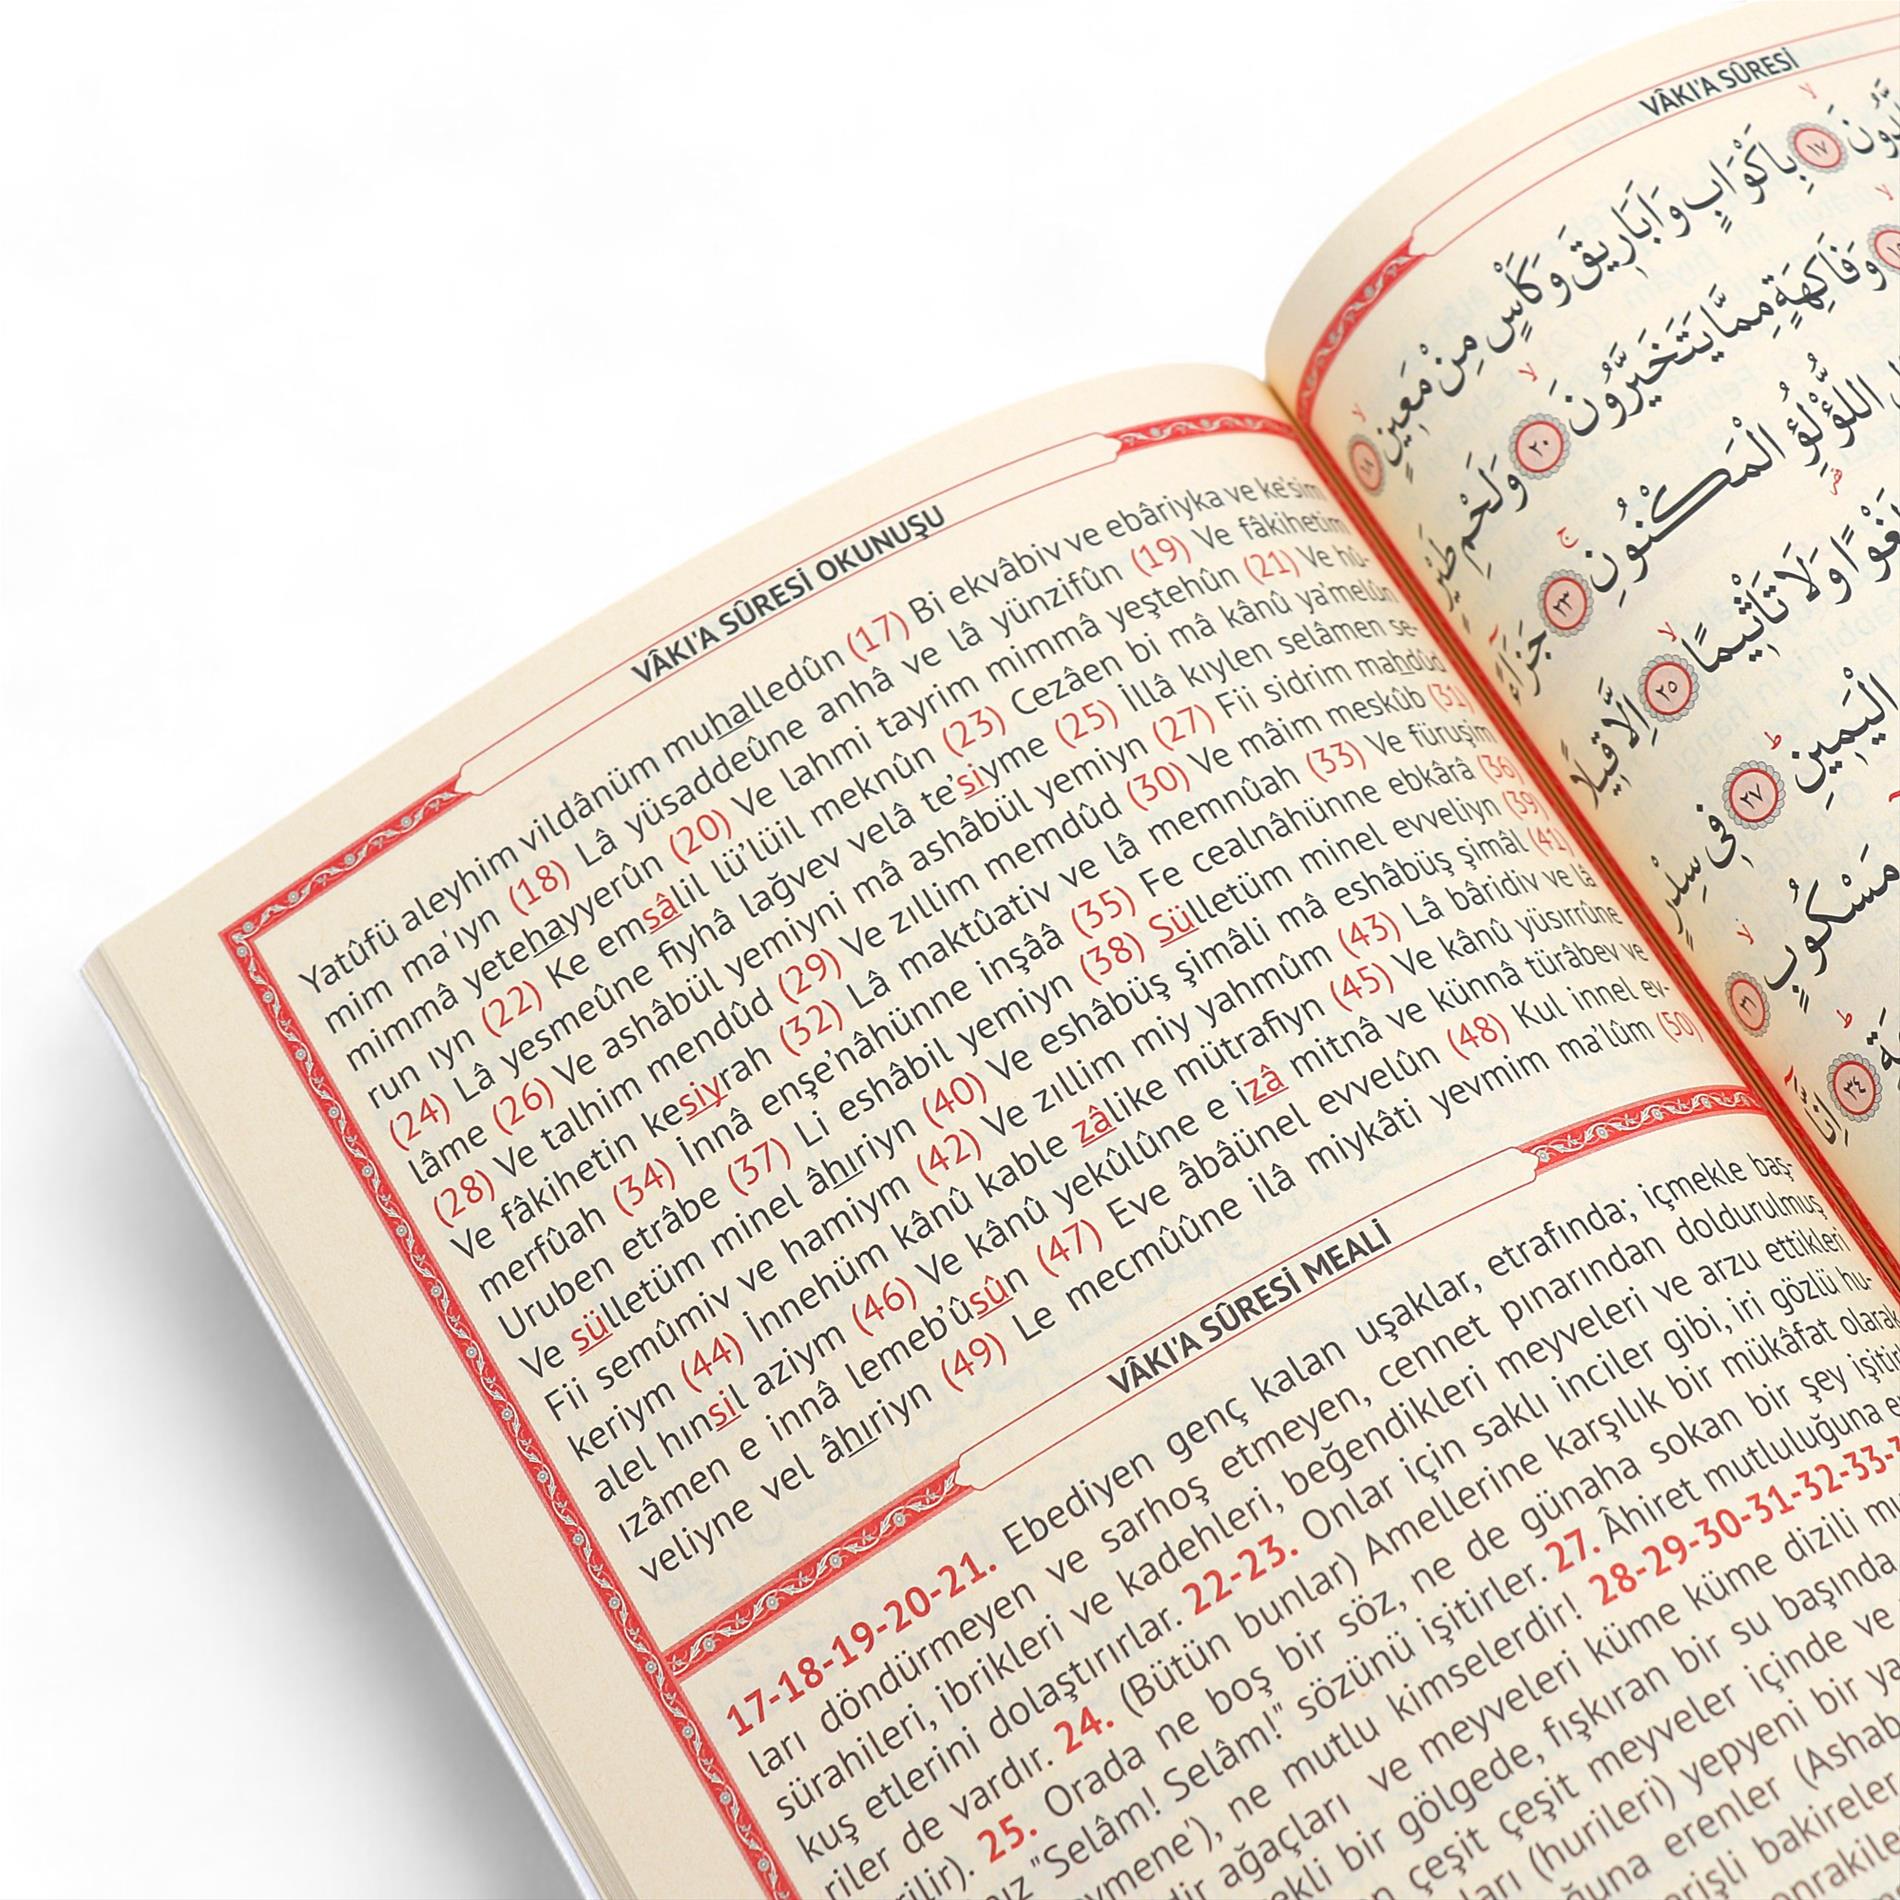 VÂKI'A SÛRESİ OKUNUŞU
Yatûfü aleyhim vildânüm muhalledûn (17) Bi ekvâbiv ve ebâriyka ve ke'sim
mim ma'ıyn (18) Lâ yüsaddeûne anhâ ve lâ yünzifûn (19) Ve fâkihetim
mimmâ yetehayyerûn (20) Ve lahmi tayrim mimmâ yeştehûn (21) Ve hû-
run ıyn (22) Ke emsâlil lü'lüil meknûn (23) Cezâen bi mâ kânû ya'melûn
(24) Lâ yesmeûne fiyhâ lağvev velâ te'siyme (25) İllâ kıylen selâmen se-
lâme (26) Ve ashâbül yemiyni mâ ashâbül yemiyn (27) Fii sidrim mahdûd
(28) Ve talhim mendûd (29) Ve zıllim memdûd (30) Ve mâim meskûb (31)
Ve fâkihetin kesiyrah (32) Lâ maktûativ ve lâ memnûah (33) Ve füruşim
merfûah (34) İnnâ enşe'nâhünne inşââ (35) Fe cealnâhünne ebkârâ (36)
Uruben etrâbe (37) Li eshâbil yemiyn (38) Sülletüm minel evveliyn (39)
Ve sülletüm minel âhıriyn (40) Ve eshâbüş şimâli mâ eshâbüş şimâl (41)
Fii semûmiv ve hamiym (42) Ve zıllim miy yahmûm (43) Lâ bâridiv ve lâ
keriym (44) İnnehüm kânû kable zâlike mütrafiyn (45) Ve kânû yüsırrûne
alel hınsil aziym (46) Ve kânû yekûlûne e izâ mitnâ ve künnâ türâbev ve
ızâmen e innâ lemeb'ûsûn (47) Eve âbâünel evvelûn (48) Kul innel ev-
veliyne vel âhıriyn (49) Le mecmûûne ilâ miykâti yevmim ma'lûm (50)
VÂKI'A SÛRESİ MEALİ
17-18-19-20-21. Ebediyen genç kalan uşaklar, etrafında; içmekle baş-
ları döndürmeyen ve sarhoş etmeyen, cennet pınarından doldurulmuş
sürahileri, ibrikleri ve kadehleri, beğendikleri meyveleri ve arzu ettikleri
kuş etlerini dolaştırırlar. 22-23. Onlar için saklı inciler gibi, iri gözlü hu-
riler de vardır. 24. (Bütün bunlar) Amellerine karşılık bir mükâfat olarak
25. Orada ne boş bir söz, ne de günaha sokan bir şey
"Selâm! Selâm!" sözünü işitirler. 27. Âhiret mutluluğuna
ne mutlu kimselerdir! 28-29-30-31-32-33-
ağaçları ve meyveleri küme küme dizili
bir gölgede, fışkıran bir su başında
çeşit çeşit meyveler içinde ve
(hurileri) yepyeni bir
erenler
bakireler
VÂKI'A SÛRESİ
١٧ بِاَكْوَابٍ وَاَبَارِيقَ وَكَاْسٍ مِنْ مَعِينٍ ١٨
وَفَاكِهَةٍ مِمَّا يَتَخَيَّرُونَ ٢٠ وَلَحْمِ طَيْرٍ
اللُّؤْلُؤِ الْمَكْنُونِ ٢٣ جَزَاءً
وَلَا تَاْثِيمًا ٢٥ اِلَّا قِيلًا
الْيَمِينِ ٢٧ فِى سِدْرٍ
مَسْكُوبٍ ٣١
٣٤ اِنَّا